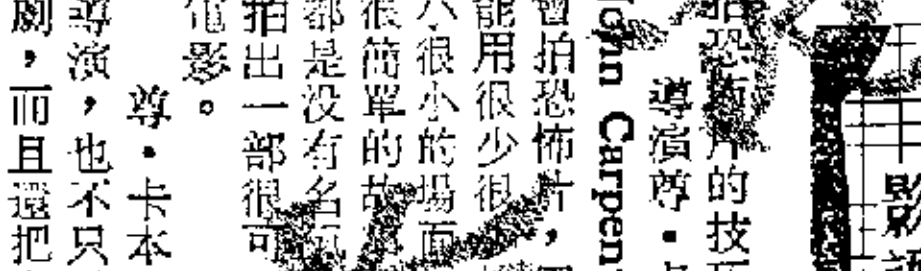 影
拍恐怖片的技
導演尊・卡
John Carpen
會拍恐怖片，
能用很少很
小很小的場面
很簡單的故
都是没有名氣
拍出一部很可
電影。
尊・卡本
導演，也不只
劇，而且還把